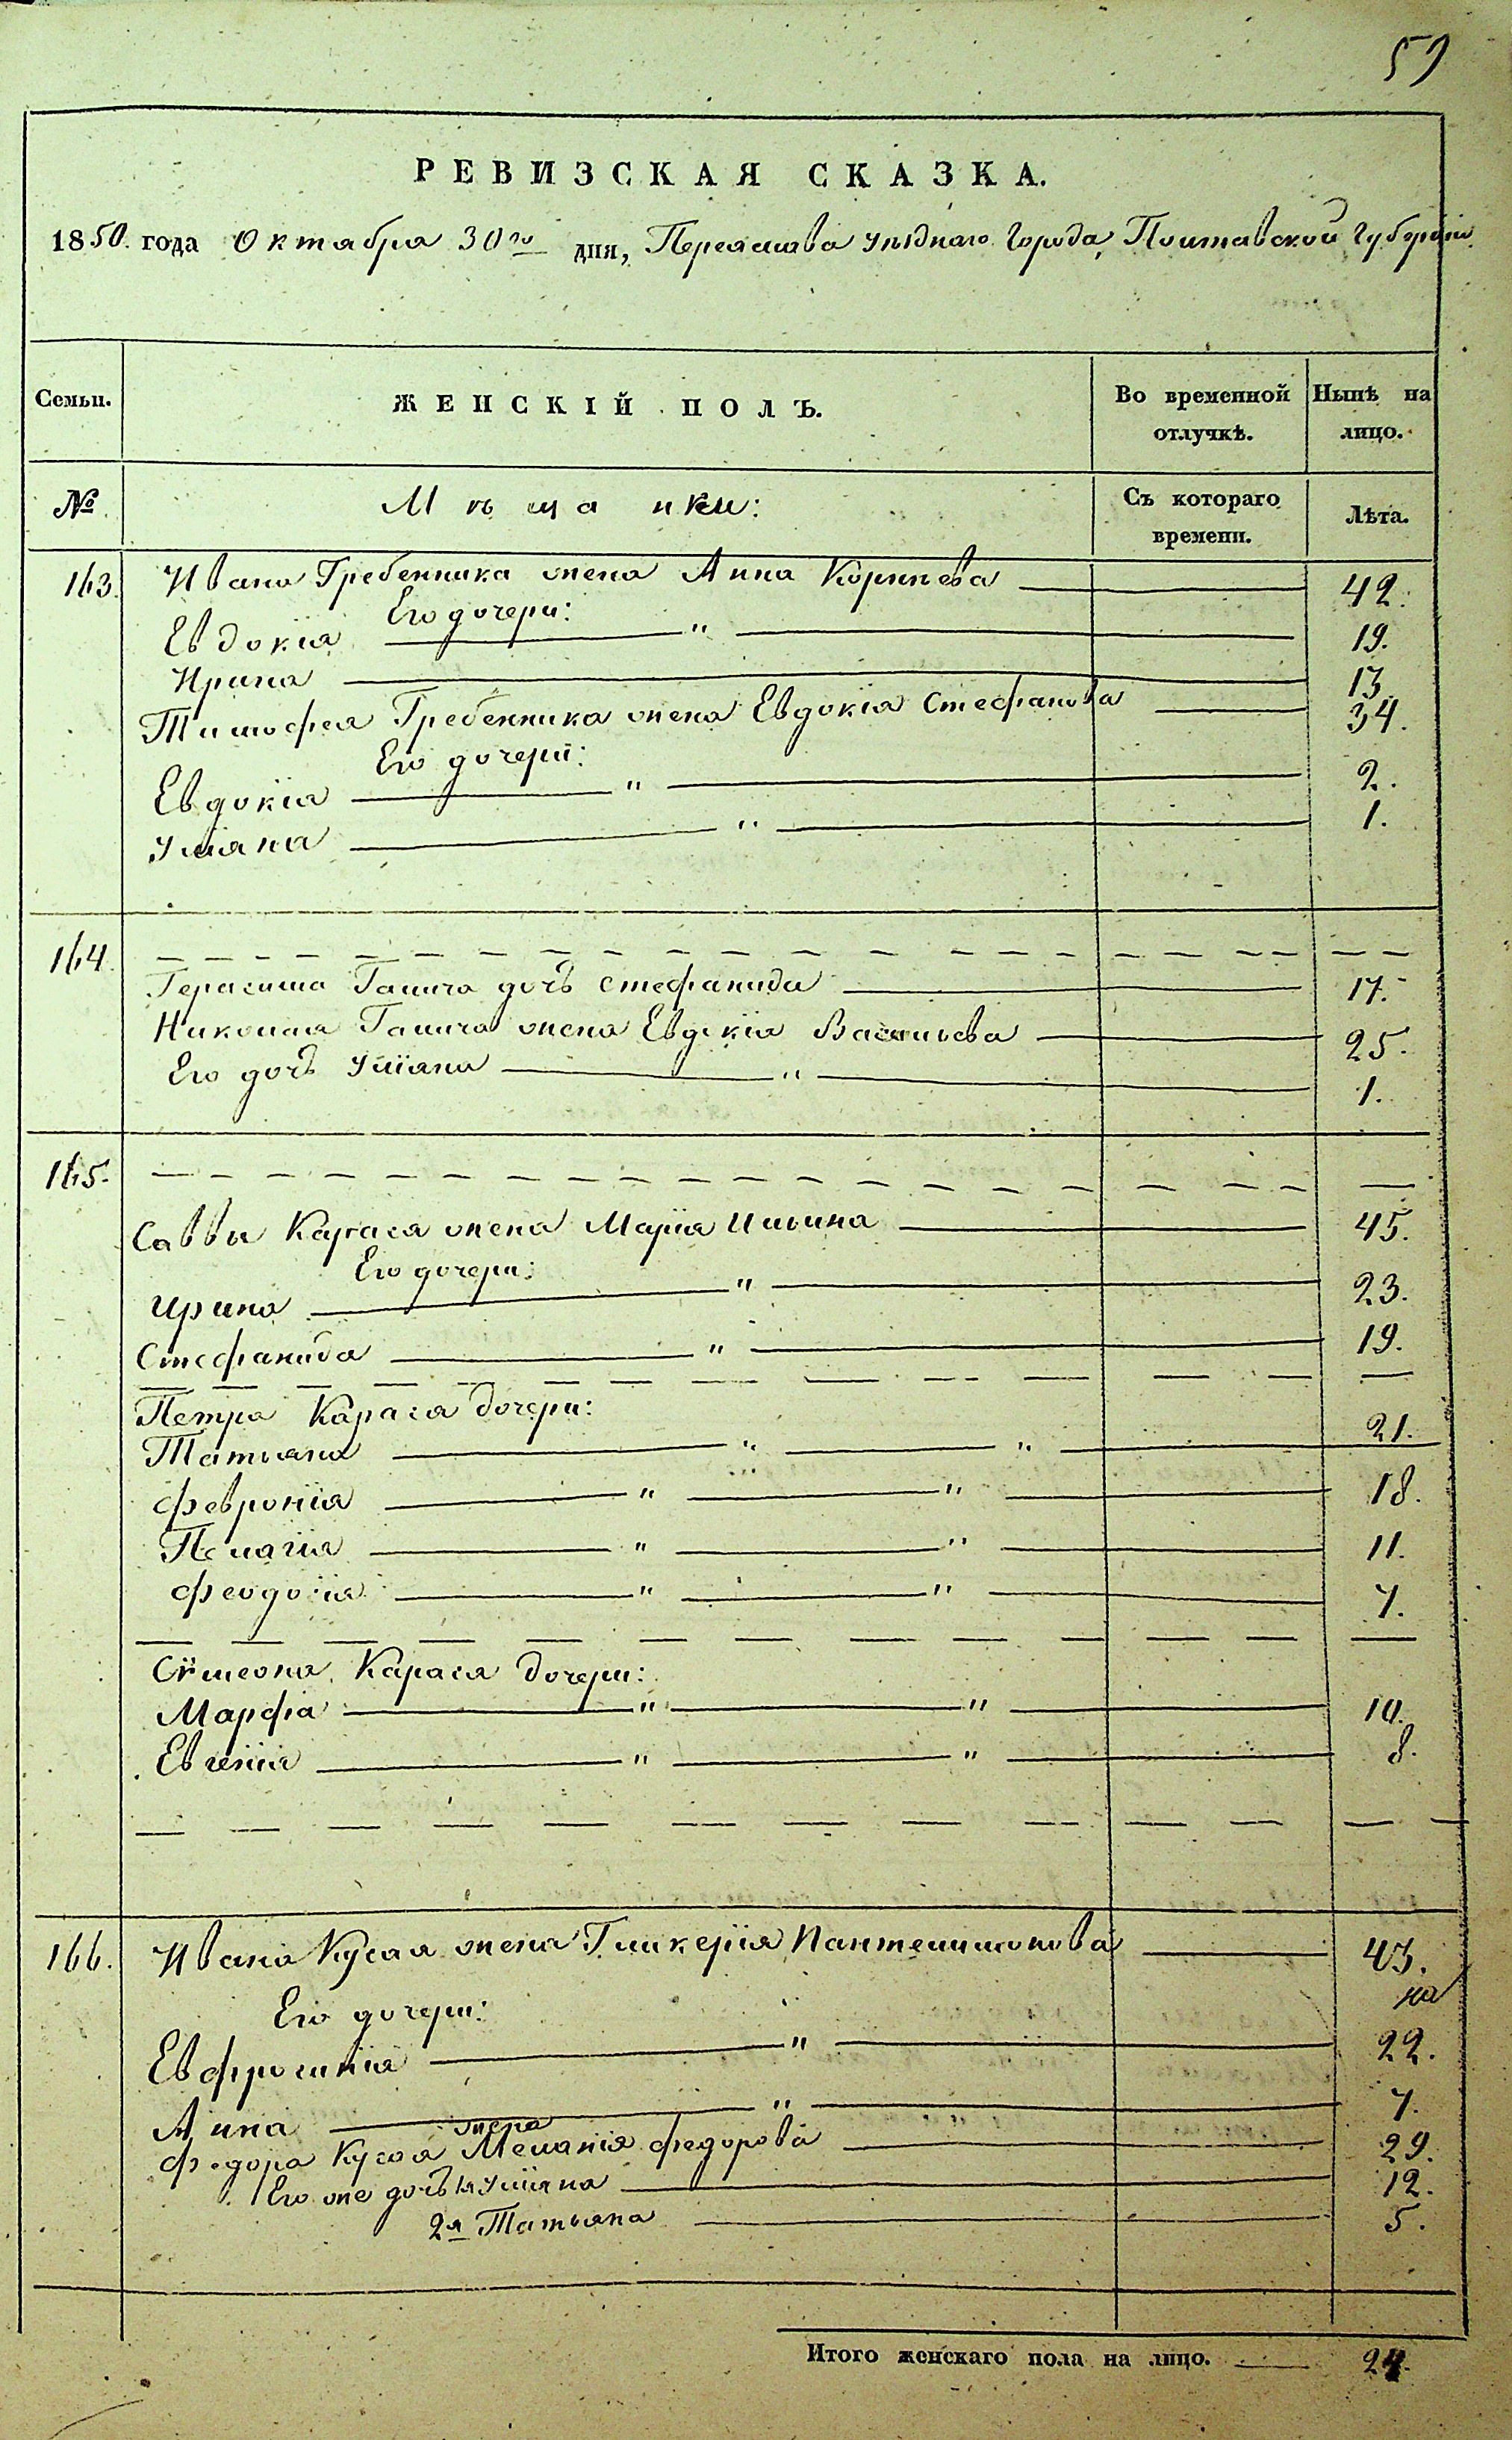 59
РЕВИЗСКАЯ СКАЗКА.
1850. года Октября 30го дня, Переяслава уѣзднаго Города, Полтавской Губерніи
Семьи. ЖЕНСКІЙ ПОЛЪ. Во временной отлучкѣ. Нынѣ на лицо.
№ Мѣщанки: Съ котораго времени. Лѣта.
163. Ивана Гребенника жена Анна Корнѣева 42.
Его дочери:
Евдокія " 19.
Ирина 13.
Тимофея Гребенника жена Евдокія Стефанова 34.
Его дочери:
Евдокія " 2.
Уліяна " 1.
164.
Герасима Галича дочь Стефанида 17.
Николая Галича жена Евдокія Васильева 25.
Его дочь Уліяна " 1.
165.
Саввы Карася жена Марія Ильина 45.
Его дочери:
Ирина " 23.
Стефанида " 19.
Петра Карася дочери:
Татьяна " " 21.
Февронія " " 18.
Пелагія " " 11.
Феодосія " " 7.
Сѵмеона Карася дочери:
Марфа " " 10.
Евгенія " " 8.
166. Ивана Кусая жена Гликерія Пантелимонова 43.
на
Его дочери:
Евфросинія " 22.
Анна " 7.
Федора Кусая жена Меланія Федорова 29.
Его же дочь 1я Уліяна 12.
2я Татьяна 5.
Итого женскаго пола на лицо. 24.